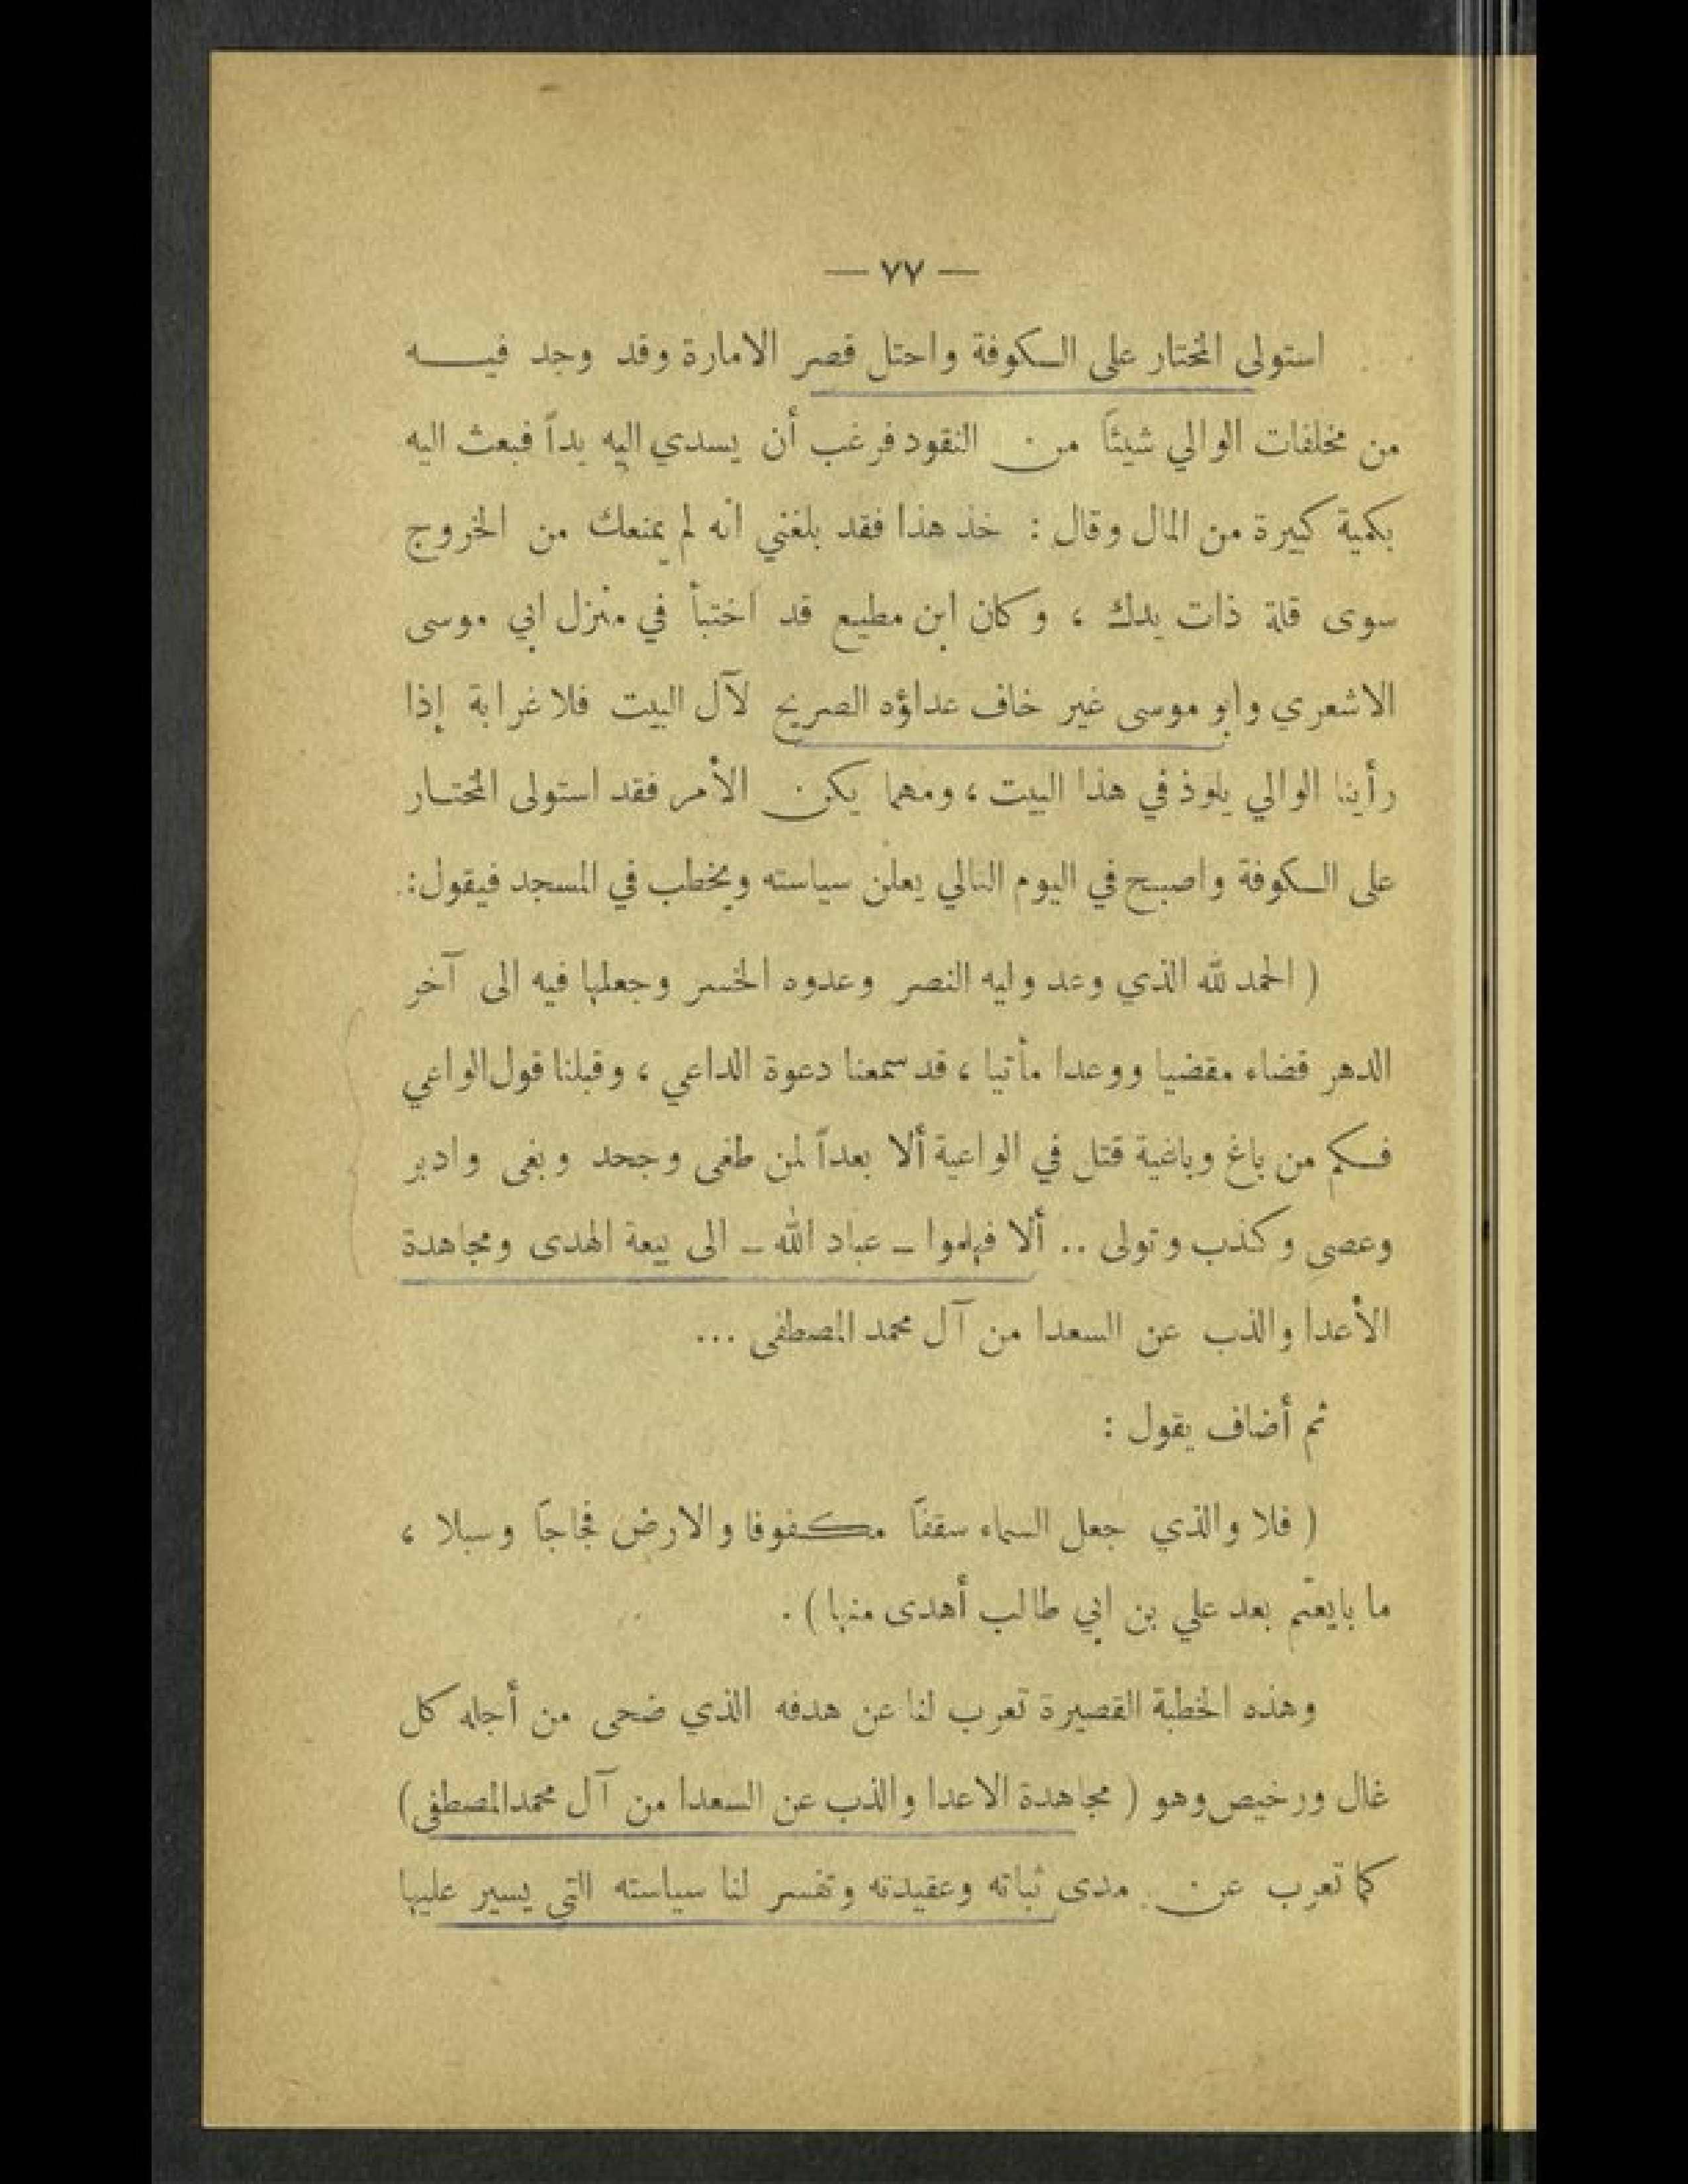 — ٧٧ —
استولى المختار على الكوفة واحتل قصر الامارة وقد وجد فيه
من مخلفات الوالي شيئاً من النقود فرغب أن يسدي اليه يداً فبعث اليه
بكمية كبيرة من المال وقال : خذ هذا فقد بلغني انه لم يمنعك من الخروج
سوى قلة ذات يدك ، وكان ابن مطيع قد اختبأ في منزل ابي موسى
الاشعري وابو موسى غير خاف عداؤه الصريح لآل البيت فلا غرابة إذا
رأينا الوالي يلوذ في هذا البيت ، ومهما يكن الأمر فقد استولى المختار
على الكوفة واصبح في اليوم التالي يعلن سياسته ويخطب في المسجد فيقول :
( الحمد لله الذي وعد وليه النصر وعدوه الخسر وجعلها فيه الى آخر
الدهر قضاء مقضيا ووعدا مأتيا ، قد سمعنا دعوة الداعي ، وقبلنا قول الواعي
فكم من باغ وباغية قتل في الواعية ألا بعداً لمن طغى وجحد وبغى وادبر
وعصى وكذب وتولى .. ألا فهلموا – عباد الله – الى بيعة الهدى ومجاهدة
الأعدا والذب عن السعدا من آل محمد المصطفى ...
ثم أضاف يقول :
( فلا والذي جعل السماء سقفاً مكفوفا والارض فجاجاً وسبلا ،
ما بايعتم بعد علي بن ابي طالب أهدى منها ) .
وهذه الخطبة القصيرة تعرب لنا عن هدفه الذي ضحى من أجله كل
غال ورخيص وهو ( مجاهدة الاعدا والذب عن السعدا من آل محمد المصطفى )
كما تعرب عن مدى ثباته وعقيدته وتفسر لنا سياسته التي يسير عليها